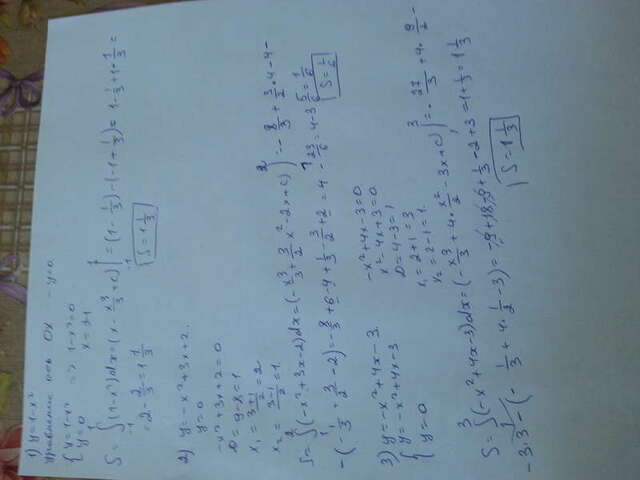 1) y=1-x²
уравнение оси OX - y=0.
{ y=1-x²
y=0 => 1-x²=0
x=±1
S=∫(1-x²)dx=(x-x³/3+c)|=(1-1/3)-(-1+1/3)=1-1/3+1-1/3=
=2-2/3=1 1/3 S=1 1/3
2) y=-x²+3x-2.
y=0
-x²+3x-2=0
D=9-8=1.
x₁=3+1/2=2.
x₂=3-1/2=1.
S=∫(-x²+3x-2)dx=(-x³/3+3/2x²-2x+c)|=-8/3+3/2·4-4-
-(-1/3+3/2-2)=-8/3+6-4+1/3-3/2+2=4-23/6=4-3 5/6=1/6
S=1/6
3) y=-x²+4x-3.
{ y=-x²+4x-3
y=0
-x²+4x-3=0
x²-4x+3=0.
D=4-3=1,
x₁=2+1=3
x₂=2-1=1.
S=∫(-x²+4x-3)dx=(-x³/3+4·x²/2-3x+c)|=-27/3+4·9/2-
-3·3-(-1/3+4·1/2-3)=-9+18-9+1/3-2+3=1+1/3=1 1/3
S=1 1/3